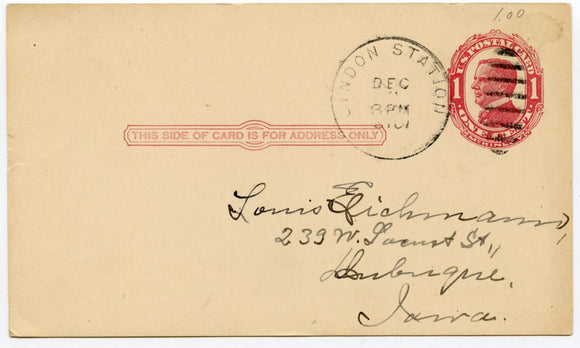 1.00
U.S. POSTAL CARD
1 1
ONE CENT
LYNDON STATION
DEC
8 PM
THIS SIDE OF CARD IS FOR ADDRESS ONLY
Louis Eichmann,
239 W. Locust St.,
Dubuque,
Iowa.